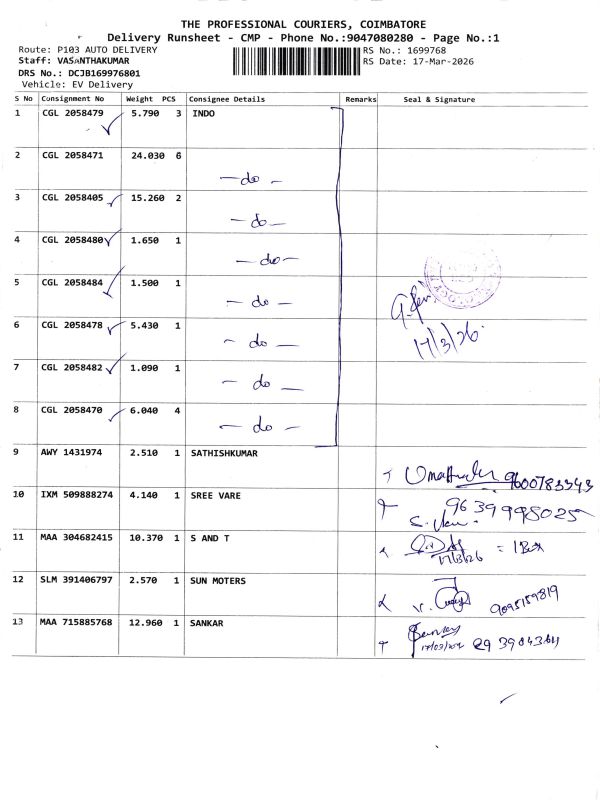 THE PROFESSIONAL COURIERS, COIMBATORE
Delivery Runsheet - CMP - Phone No.:9047080280 - Page No.:1
Route: P103 AUTO DELIVERY
RS No.: 1699768
Staff: VASANTHAKUMAR
RS Date: 17-Mar-2026
DRS No.: DCJB169976801
Vehicle: EV Delivery
S No Consignment No Weight PCS Consignee Details Remarks Seal & Signature
1 CGL 2058479 5.790 3 INDO
2 CGL 2058471 24.030 6
- do -
3 CGL 2058405 15.260 2
- do -
4 CGL 2058480 1.650 1
- do -
5 CGL 2058484 1.500 1
- do -
6 CGL 2058478 5.430 1
- do -
17/3/26
7 CGL 2058482 1.090 1
- do -
8 CGL 2058470 6.040 4
- do -
9 AWY 1431974 2.510 1 SATHISHKUMAR
9600783343
10 IXM 509888274 4.140 1 SREE VARE
9639998025
11 MAA 304682415 10.370 1 S AND T
17/3/26 = 1 Box
12 SLM 391406797 2.570 1 SUN MOTERS
9095159819
13 MAA 715885768 12.960 1 SANKAR